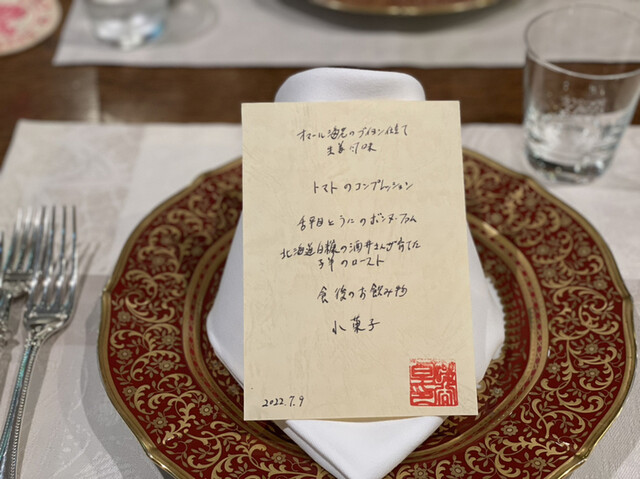 オマール海老のブイヨン仕立て
生姜風味
トマトのコンプレッション
舌平目とうにのボンヌ・ファム
北海道白糠の酒井さんが育てた
子羊のロースト
食後のお飲み物
小菓子
2022.7.9